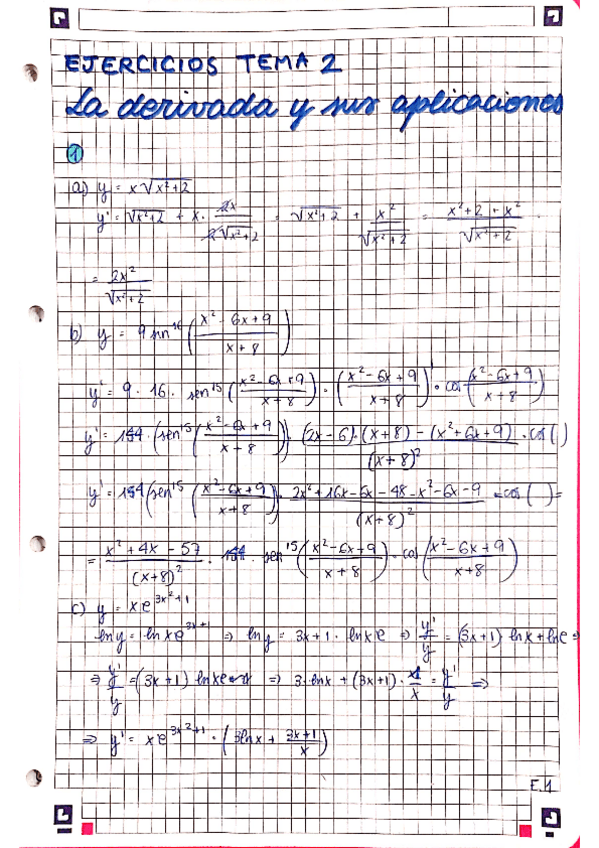 EJERCICIOS TEMA 2
La derivada y sus aplicaciones
1
a) y = x√(x²+2)
y' = √(x²+2) + x · 2x/(2√(x²+2)) = √(x²+2) + x²/√(x²+2) = (x²+2+x²)/√(x²+2)
= 2x²/√(x²+2)
b) y = 9 sin¹⁶((x²-6x+9)/(x+8))
y' = 9 · 16 · sen¹⁵((x²-6x+9)/(x+8)) · ((x²-6x+9)/(x+8))' · cos((x²-6x+9)/(x+8))
y' = 154 · (sen¹⁵((x²-6x+9)/(x+8)) · ((2x-6)·(x+8)-(x²+6x+9))/(x+8)² · cos( )
y' = 154(sen¹⁵((x²-6x+9)/(x+8)) · (2x²+16x-6x-48-x²-6x-9)/(x+8)² · cos( ) =
= (x²+4x-57)/(x+8)² · 154 · sen¹⁵((x²-6x+9)/(x+8)) · cos((x²-6x+9)/(x+8))
c) y = xe^(3x²+1)
ln y = ln xe^(3x+1) ⇒ ln y = 3x+1 · ln xe ⇒ y'/y = (3x+1) ln x + ln e ⇒
⇒ y'/y = (3x+1) ln xe ⇒ 3·ln x + (3x+1) · 1/x = y'/y ⇒
⇒ y' = xe^(3x²+1) · (3 ln x + (3x+1)/x)
E.1